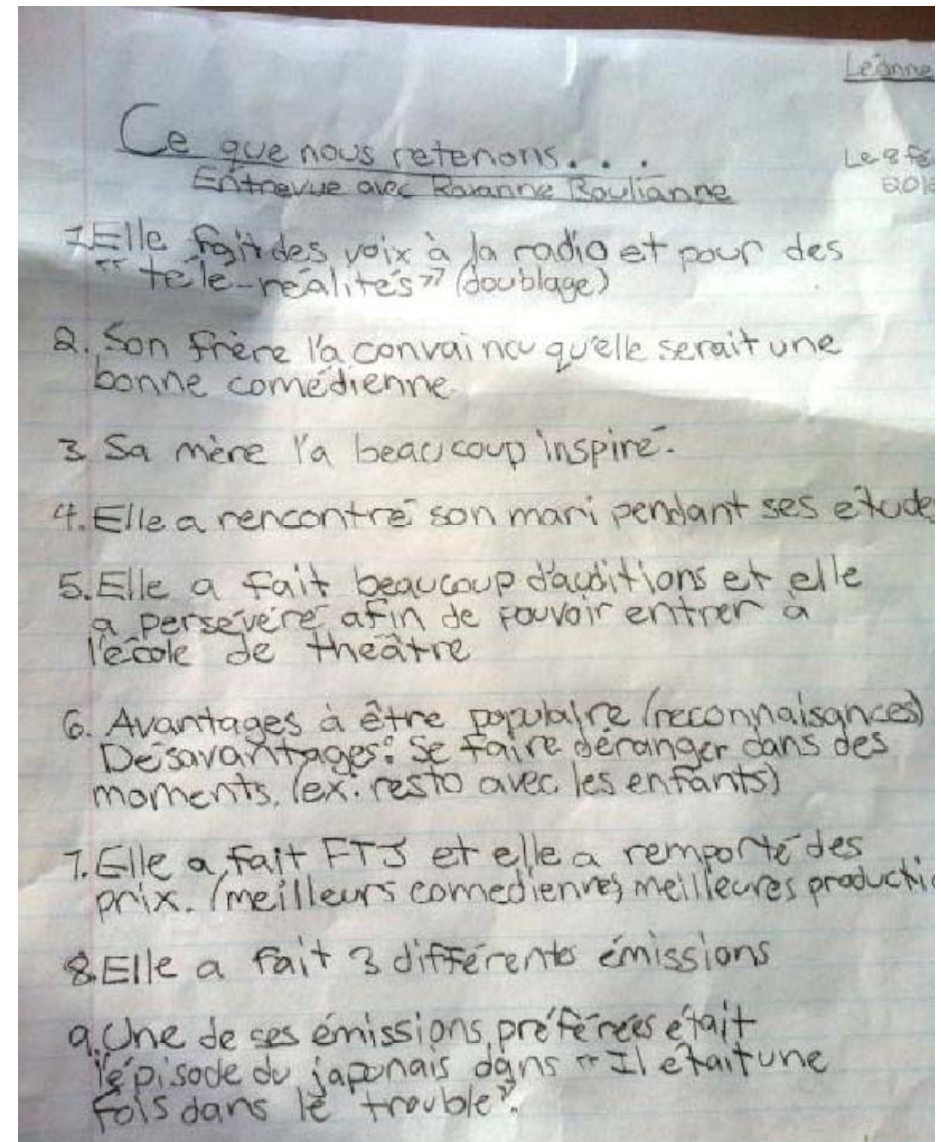 Léanne
Ce que nous retenons...
Le 8 fé
201
Entrevue avec Roxanne Boulianne
1. Elle fait des voix à la radio et pour des
"télé-réalités" (doublage)
2. Son frère l'a convaincu qu'elle serait une
bonne comédienne
3 Sa mère l'a beaucoup inspiré.
4. Elle a rencontré son mari pendant ses etudes
5. Elle a fait beaucoup d'auditions et elle
a persévéré afin de pouvoir entrer à
l'école de théâtre
6. Avantages à être populaire (reconnaisances)
Désavantages: Se faire déranger dans des
moments. (ex. resto avec les enfants)
7. Elle a fait FTJ et elle a remporté des
prix. (meilleurs comediennes, meilleures producti
8. Elle a fait 3 différents émissions
9. Une de ses émissions préférées était
l'épisode du japonais dans "Il était une
fois dans le trouble".